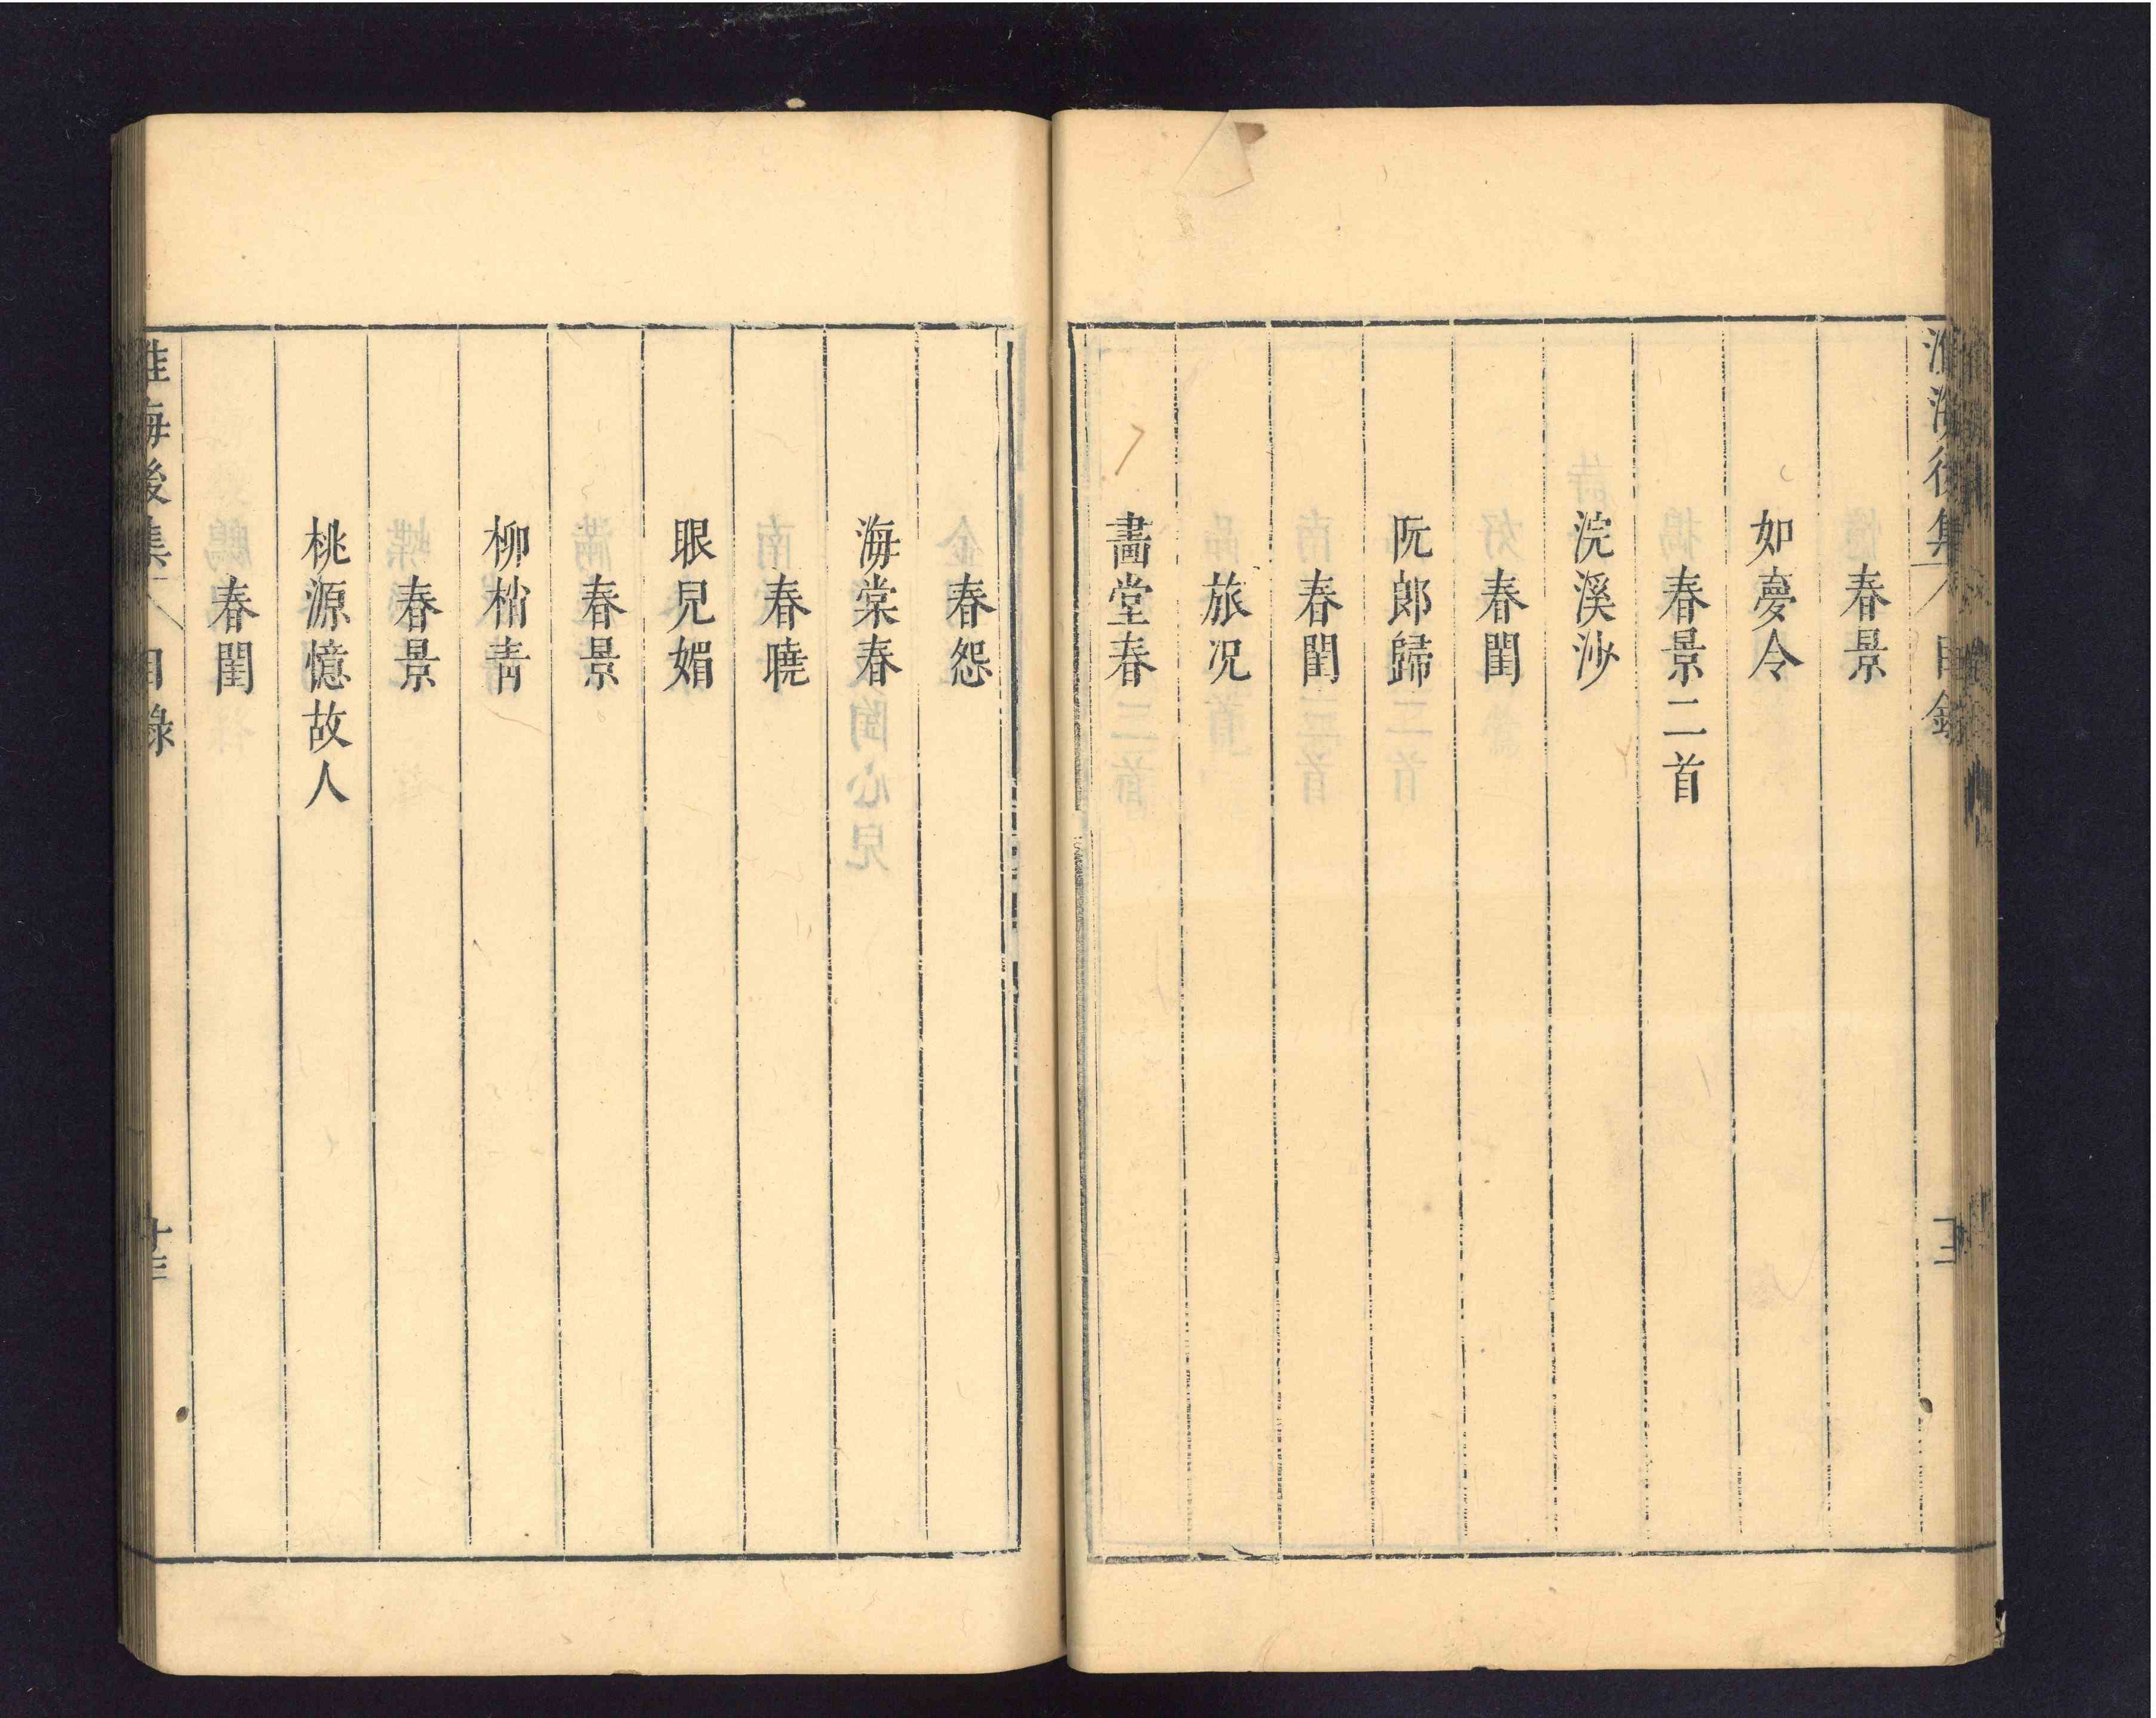 淮海後集 目錄
春景
如夢令
春景二首
浣溪沙
春閨
阮郎歸
春閨
旅况
畫堂春
春怨
海棠春
春曉
眼兒媚
春景
柳梢青
春景
桃源憶故人
春閨
淮海後集 目錄